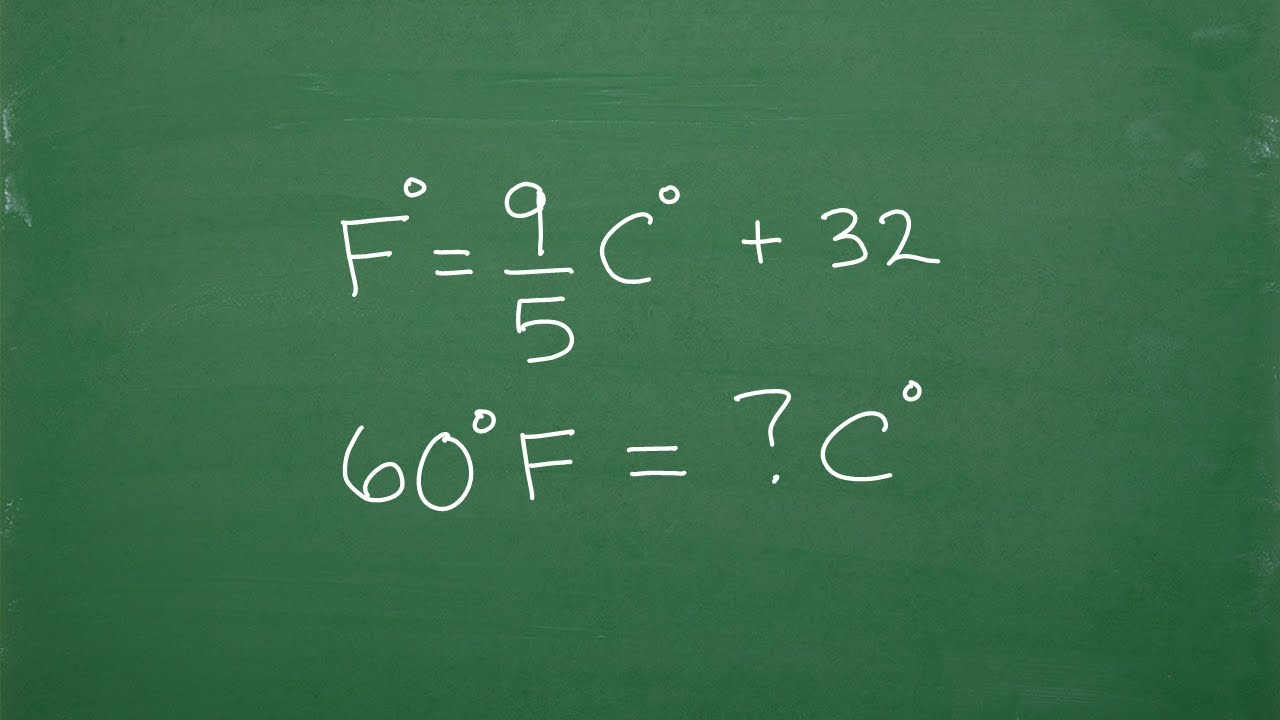 F° = 9/5 C° + 32
60°F = ? C°